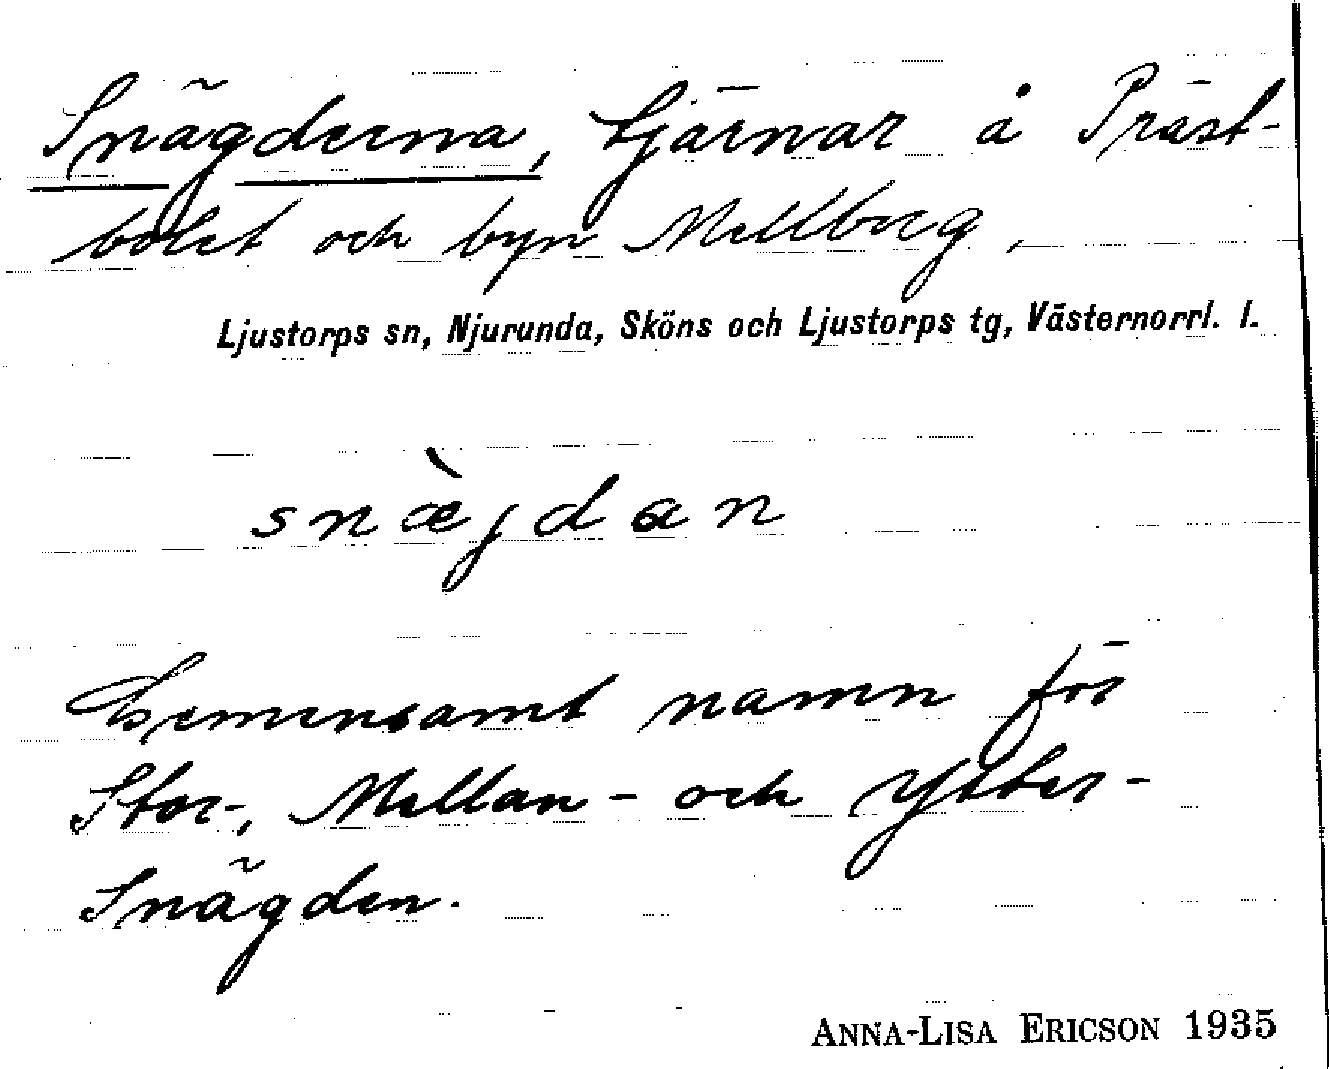 Snägderna, tjärnar å Präst-
bolet och byn Mellberg,
Ljustorps sn, Njurunda, Sköns och Ljustorps tg, Västernorrl. l.
snæ̀jdan
Gemensamt namn för
Stor-, Mellan- och Ytter-
Snägden.
ANNA-LISA ERICSON 1935